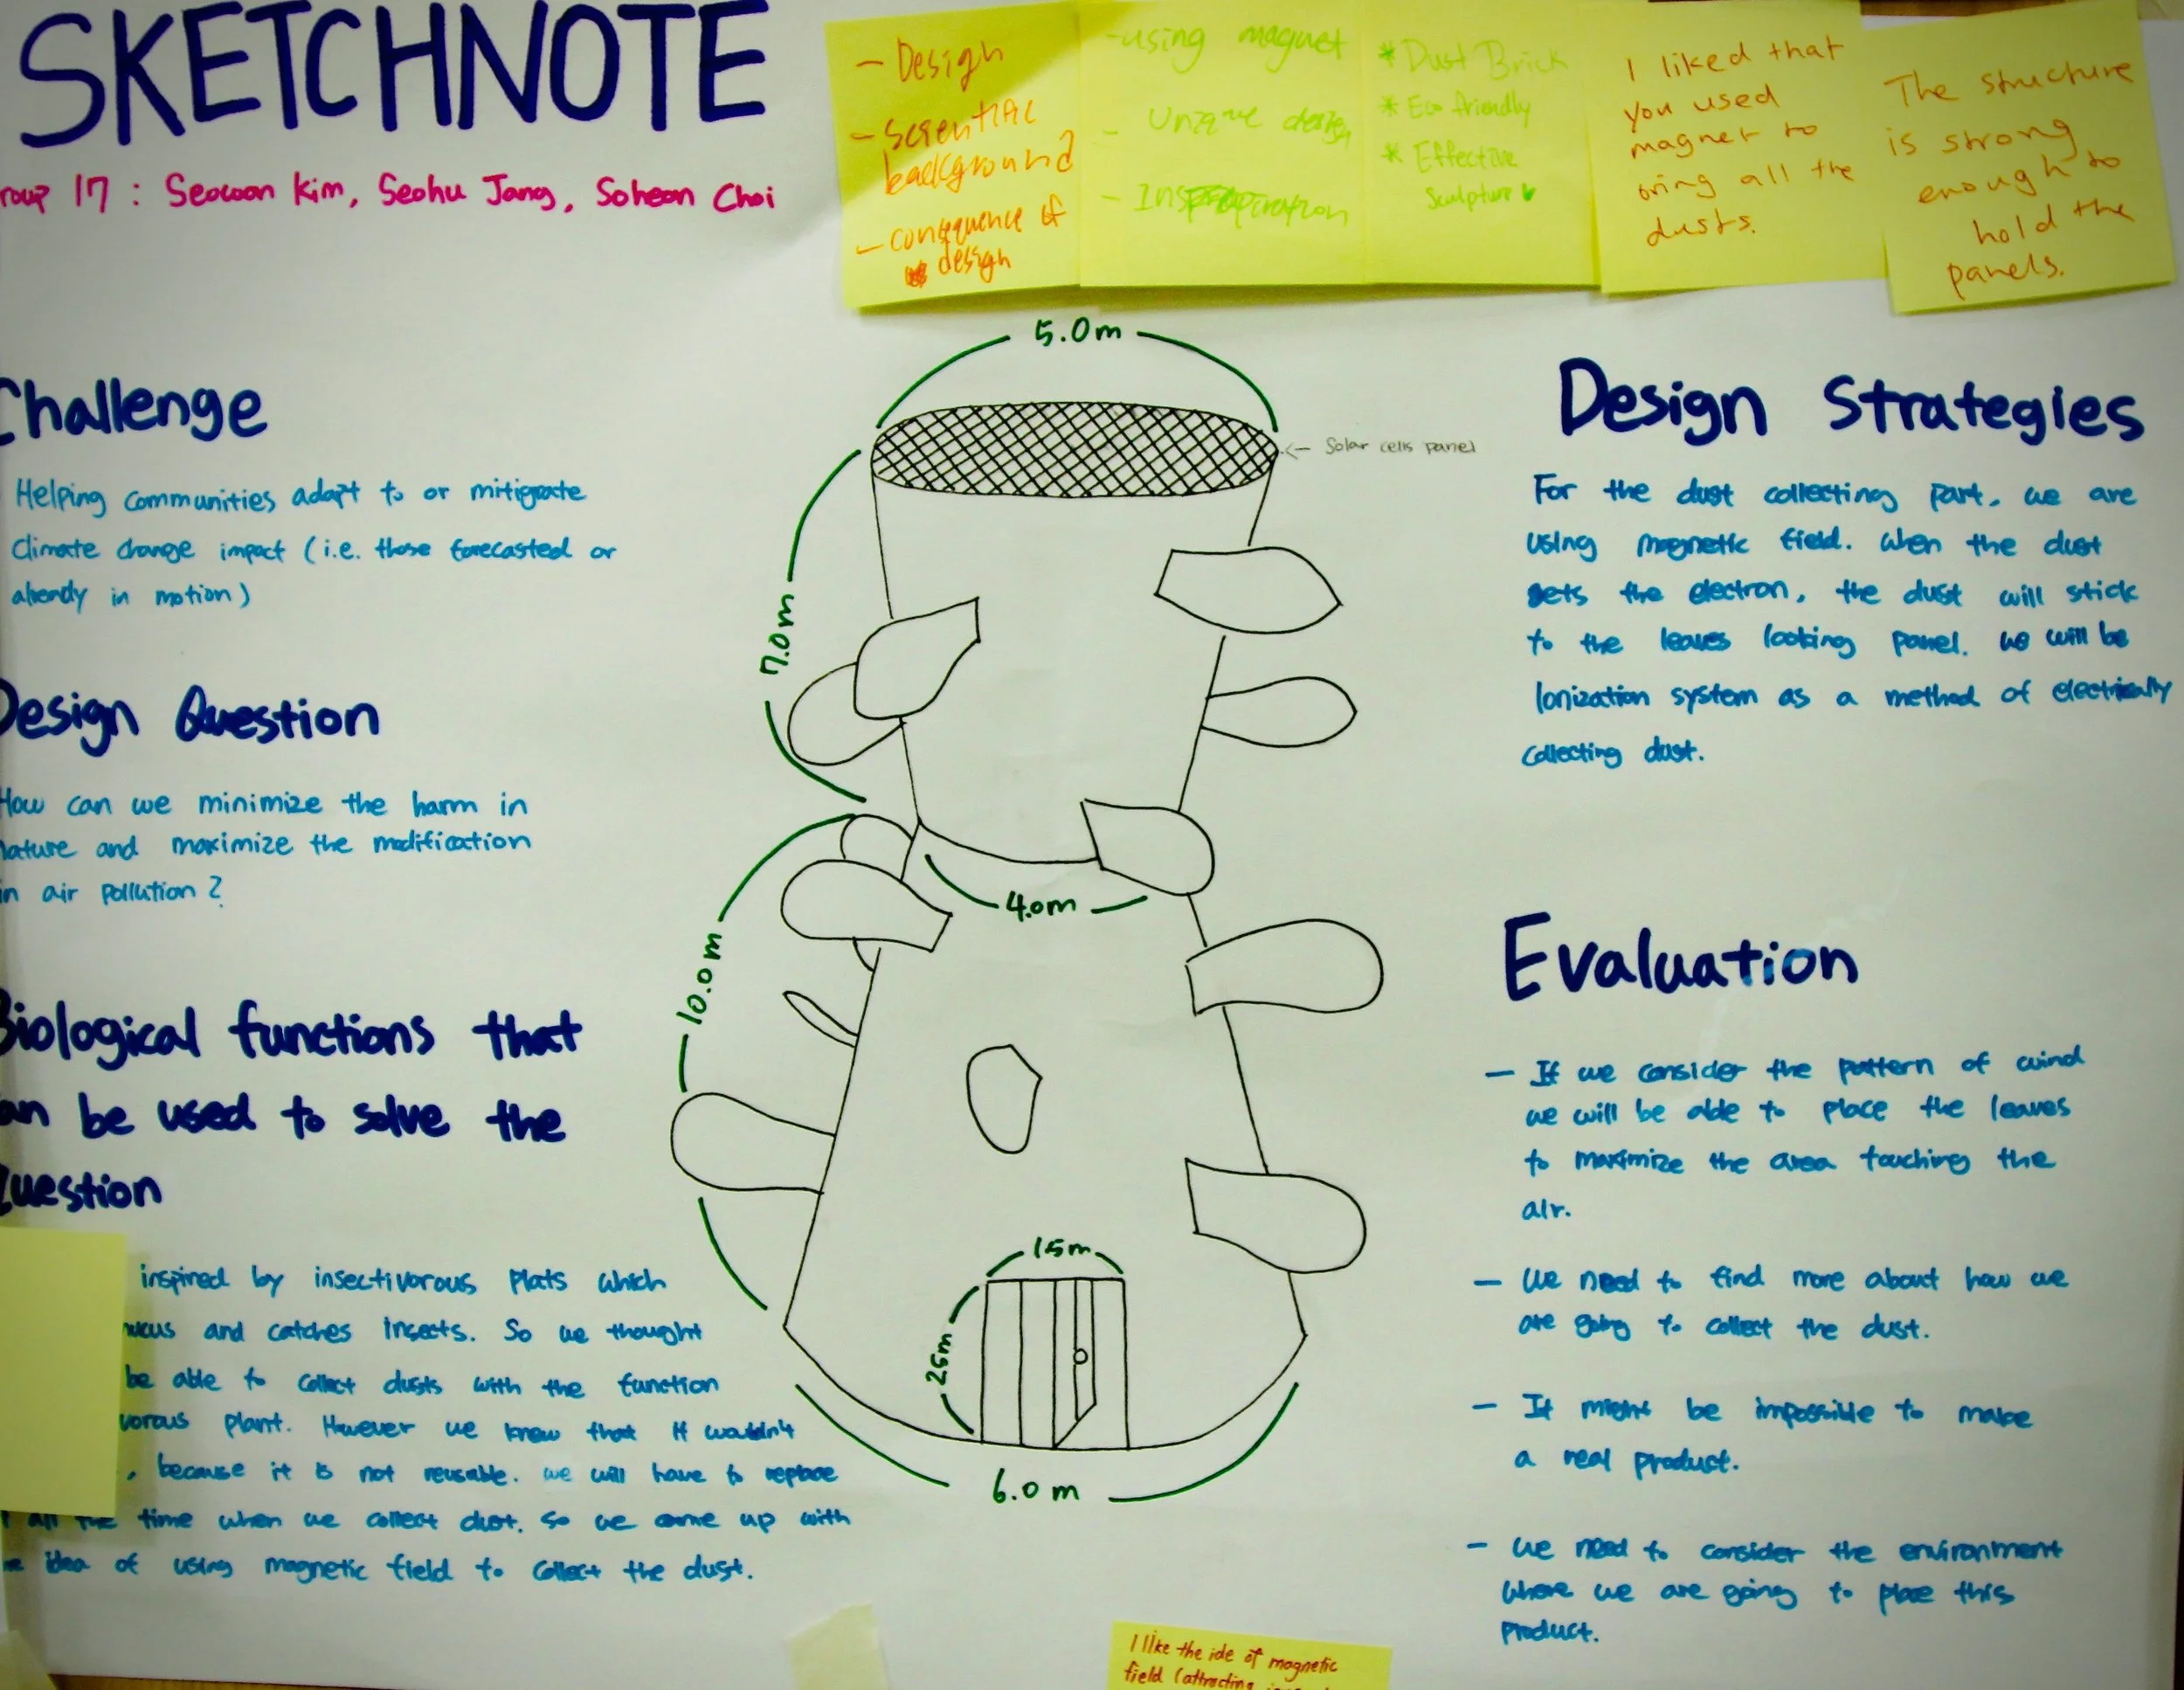 SKETCHNOTE
roup 17 : Seowan Kim, Seohu Jang, Soheon Choi
- Design
- Scientific
background
- consequence of
design
-using magnet
- Unique design
- Inspiration
* Dust Brick
* Eco friendly
* Effective
Sculpture
I liked that
you used
magnet to
bring all the
dusts.
The structure
is strong
enough to
hold the
panels.
Challenge
Helping communities adapt to or mitigrate
climate change impact (i.e. those forecasted or
already in motion)
Design Question
How can we minimize the harm in
nature and maximize the modification
in air pollution?
Biological functions that
can be used to solve the
Question
inspired by insectivorous plats which
and catches insects. So we thought
be able to collect dusts with the function
vorous plant. However we knew that it wouldn't
, because it is not reusable. we will have to replace
all the time when we collect dust. So we came up with
idea of using magnetic field to collect the dust.
5.0m
<- Solar cells panel
7.0m
4.0m
10.0m
1.5m
2.5m
6.0 m
Design Strategies
For the dust collecting part, we are
using magnetic field. When the dust
gets the electron, the dust will stick
to the leaves looking panel. we will be
Ionization system as a method of electrically
collecting dust.
Evaluation
- If we consider the pattern of wind
we will be able to place the leaves
to maximize the area touching the
air.
- We need to find more about how we
are going to collect the dust.
- It might be impossible to make
a real product.
- We need to consider the environment
where we are going to place this
product.
I like the ide of magnetic
field (attracting